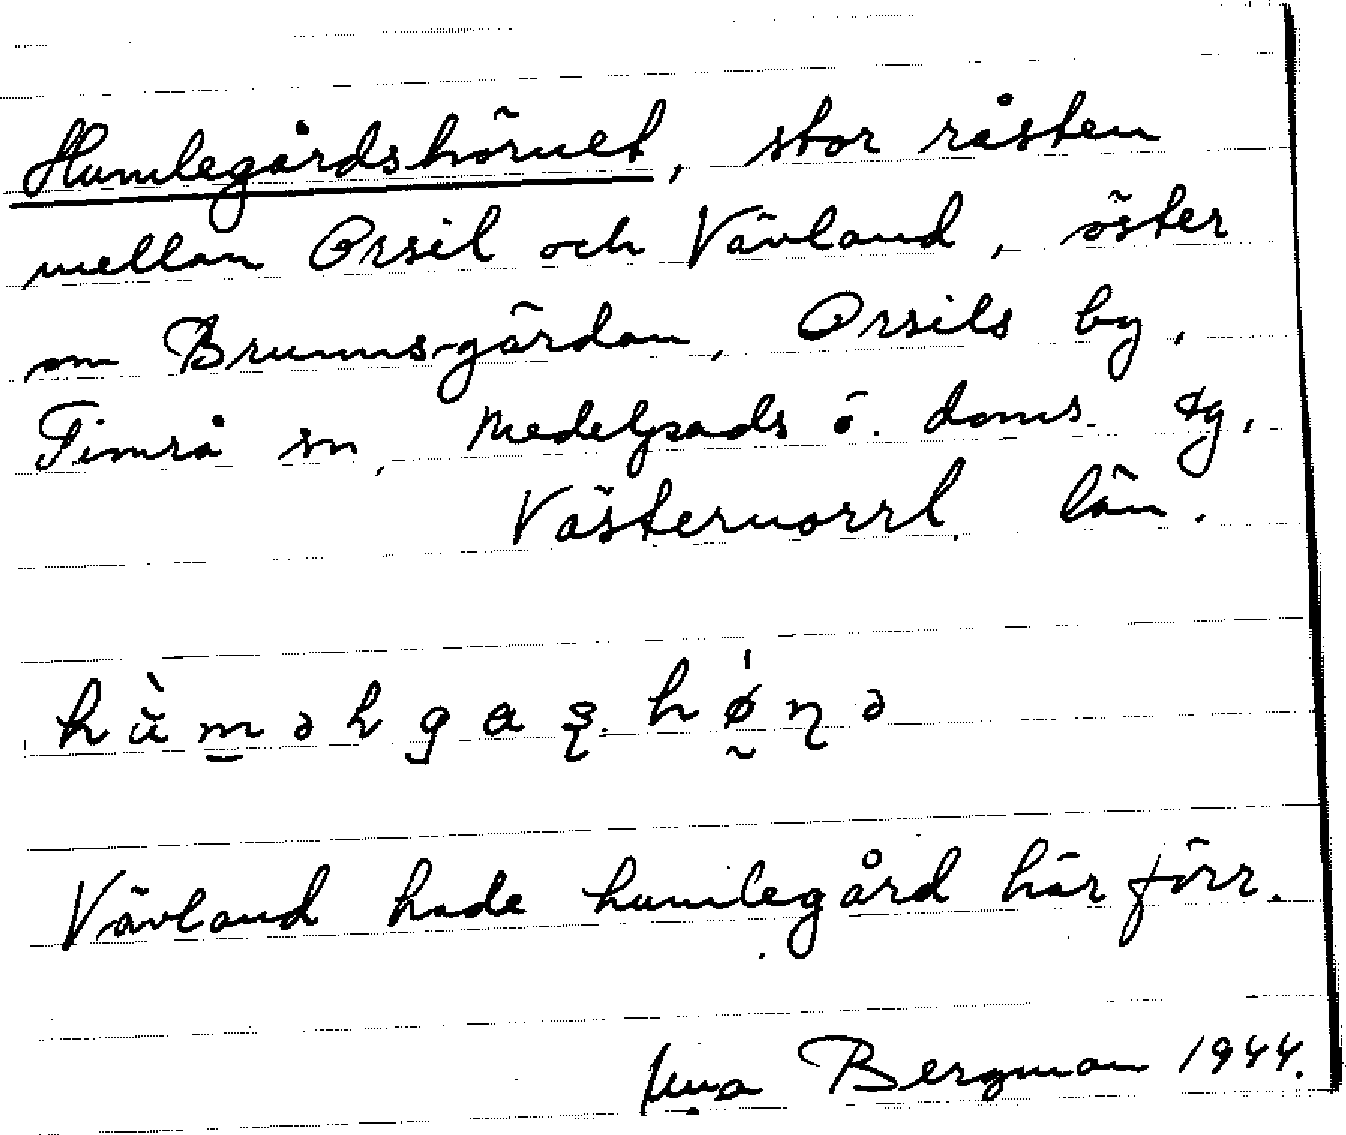 Humlegårdshörnet, stor råsten
mellan Orsil och Vävland, öster
om Brunnsgårdan, Orsils by,
Timrå sn, Medelpads ö. doms. tg,
Västernorrl. län.
Vävland hade humlegård här förr.
Bergman 1944.